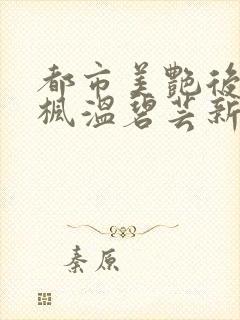 都市美艷後
楓溫碧芸新
秦原